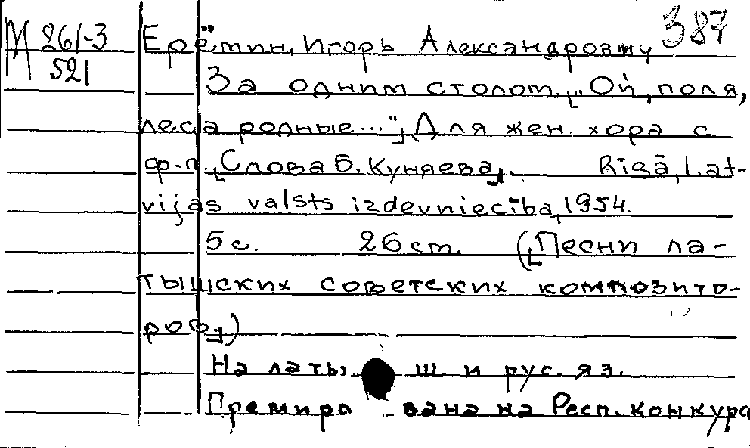 М 261-3 Ерёмин, Игорь Александрович 387
521 За одним столом. ["Ой, поля,
леса родные..."]. Для жен. хора с
ф-п. [Слова Б. Куняева]. Rīgā, Lat-
vijas valsts izdevniecība, 1954.
5 с. 26 cm. ([Песни ла-
тышских советских композито-
ров])
На латыш и рус. яз.
Премирована на Респ. конкурс